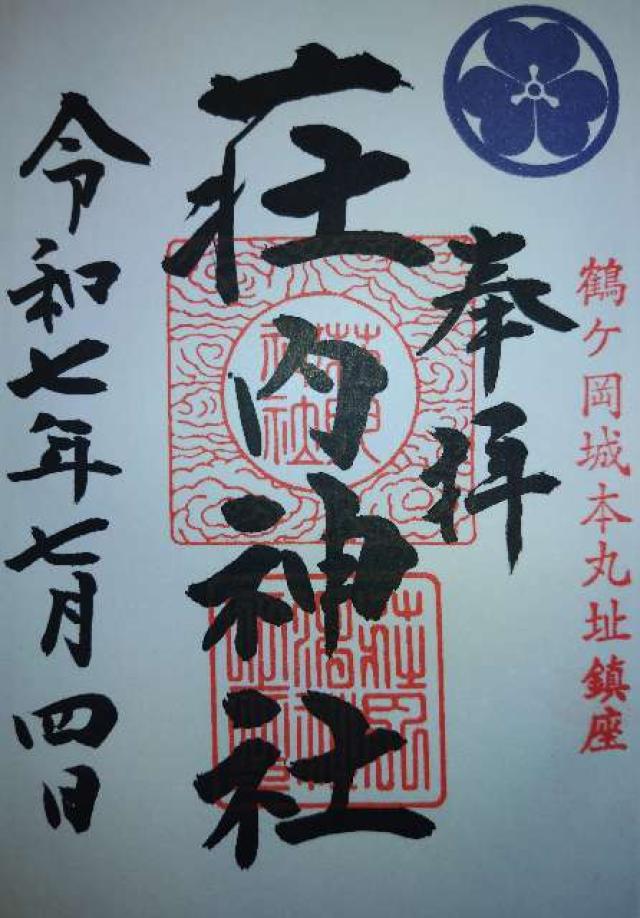 鶴ヶ岡城本丸址鎮座
奉拝
荘内神社
令和七年七月四日